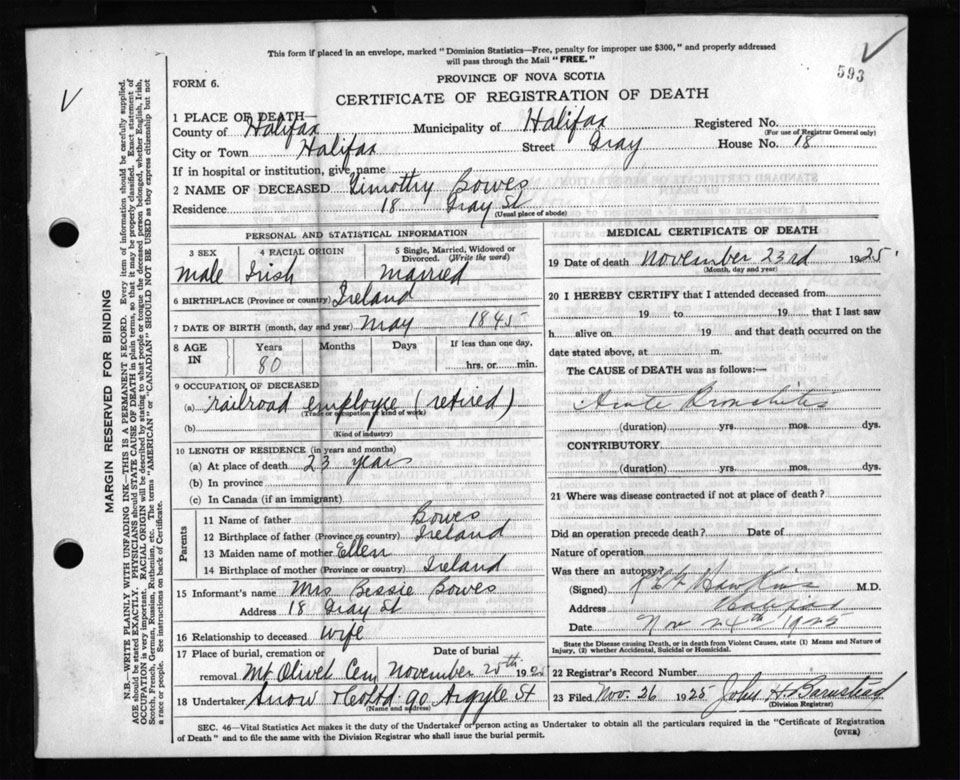 This form if placed in an envelope, marked "Dominion Statistics—Free, penalty for improper use $300," and properly addressed
will pass through the Mail "FREE."
593
FORM 6.
PROVINCE OF NOVA SCOTIA
CERTIFICATE OF REGISTRATION OF DEATH
1 PLACE OF DEATH—
County of Halifax Municipality of Halifax Registered No.
(For use of Registrar General only)
City or Town Halifax Street Gray House No. 18
If in hospital or institution, give name
2 NAME OF DECEASED Timothy Bowes
Residence 18 Gray St
(Usual place of abode)
PERSONAL AND STATISTICAL INFORMATION
3 SEX 4 RACIAL ORIGIN 5 Single, Married, Widowed or
Divorced. (Write the word)
Male Irish Married
6 BIRTHPLACE (Province or country) Ireland
7 DATE OF BIRTH (month, day and year) May 1845
8 AGE IN Years Months Days If less than one day,
80 hrs. or min.
9 OCCUPATION OF DECEASED
(a) railroad employee (retired)
(Trade or occupation or kind of work)
(b)
(Kind of industry)
10 LENGTH OF RESIDENCE (in years and months)
(a) At place of death 23 years
(b) In province
(c) In Canada (if an immigrant)
Parents
11 Name of father Bowes
12 Birthplace of father (Province or country) Ireland
13 Maiden name of mother Ellen
14 Birthplace of mother (Province or country) Ireland
15 Informant's name Mrs Bessie Bowes
Address 18 Gray St
16 Relationship to deceased wife
17 Place of burial, cremation or Date of burial
removal Mt Olivet Cem November 25th 1925
18 Undertaker Snow & Co Ltd 90 Argyle St
(Name and address)
MEDICAL CERTIFICATE OF DEATH
19 Date of death November 23rd 1925
(Month, day and year)
20 I HEREBY CERTIFY that I attended deceased from
19 to 19 that I last saw
h alive on 19 and that death occurred on the
date stated above, at m.
The CAUSE of DEATH was as follows:—
Acute Bronchitis
(duration) yrs. mos. dys.
CONTRIBUTORY
(duration) yrs. mos. dys.
21 Where was disease contracted if not at place of death?
Did an operation precede death? Date of
Nature of operation
Was there an autopsy?
(Signed) Hawkins M.D.
Address Halifax
Date Nov 24th 1925
State the Disease causing Death, or in death from Violent Causes, state (1) Means and Nature of
Injury, (2) whether Accidental, Suicidal or Homicidal.
22 Registrar's Record Number
23 Filed Nov. 26 1925 John H Barnstead
(Division Registrar)
SEC. 46—Vital Statistics Act makes it the duty of the Undertaker or person acting as Undertaker to obtain all the particulars required in the "Certificate of Registration
of Death" and to file the same with the Division Registrar who shall issue the burial permit.
(OVER)
MARGIN RESERVED FOR BINDING
N.B.—WRITE PLAINLY WITH UNFADING INK—THIS IS A PERMANENT RECORD. Every item of information should be carefully supplied.
AGE should be stated EXACTLY. PHYSICIANS should STATE CAUSE OF DEATH in plain terms, so that it may be properly classified. Exact statement of
OCCUPATION is very important. RACIAL ORIGIN will be described by stating to what people or tongue the deceased person belonged, whether English, Irish,
Scotch, French, German, Russian, Ruthenian, etc. The terms "AMERICAN" or "CANADIAN" SHOULD NOT BE USED as they express citizenship but not
a race or people. See instructions on back of Certificate.